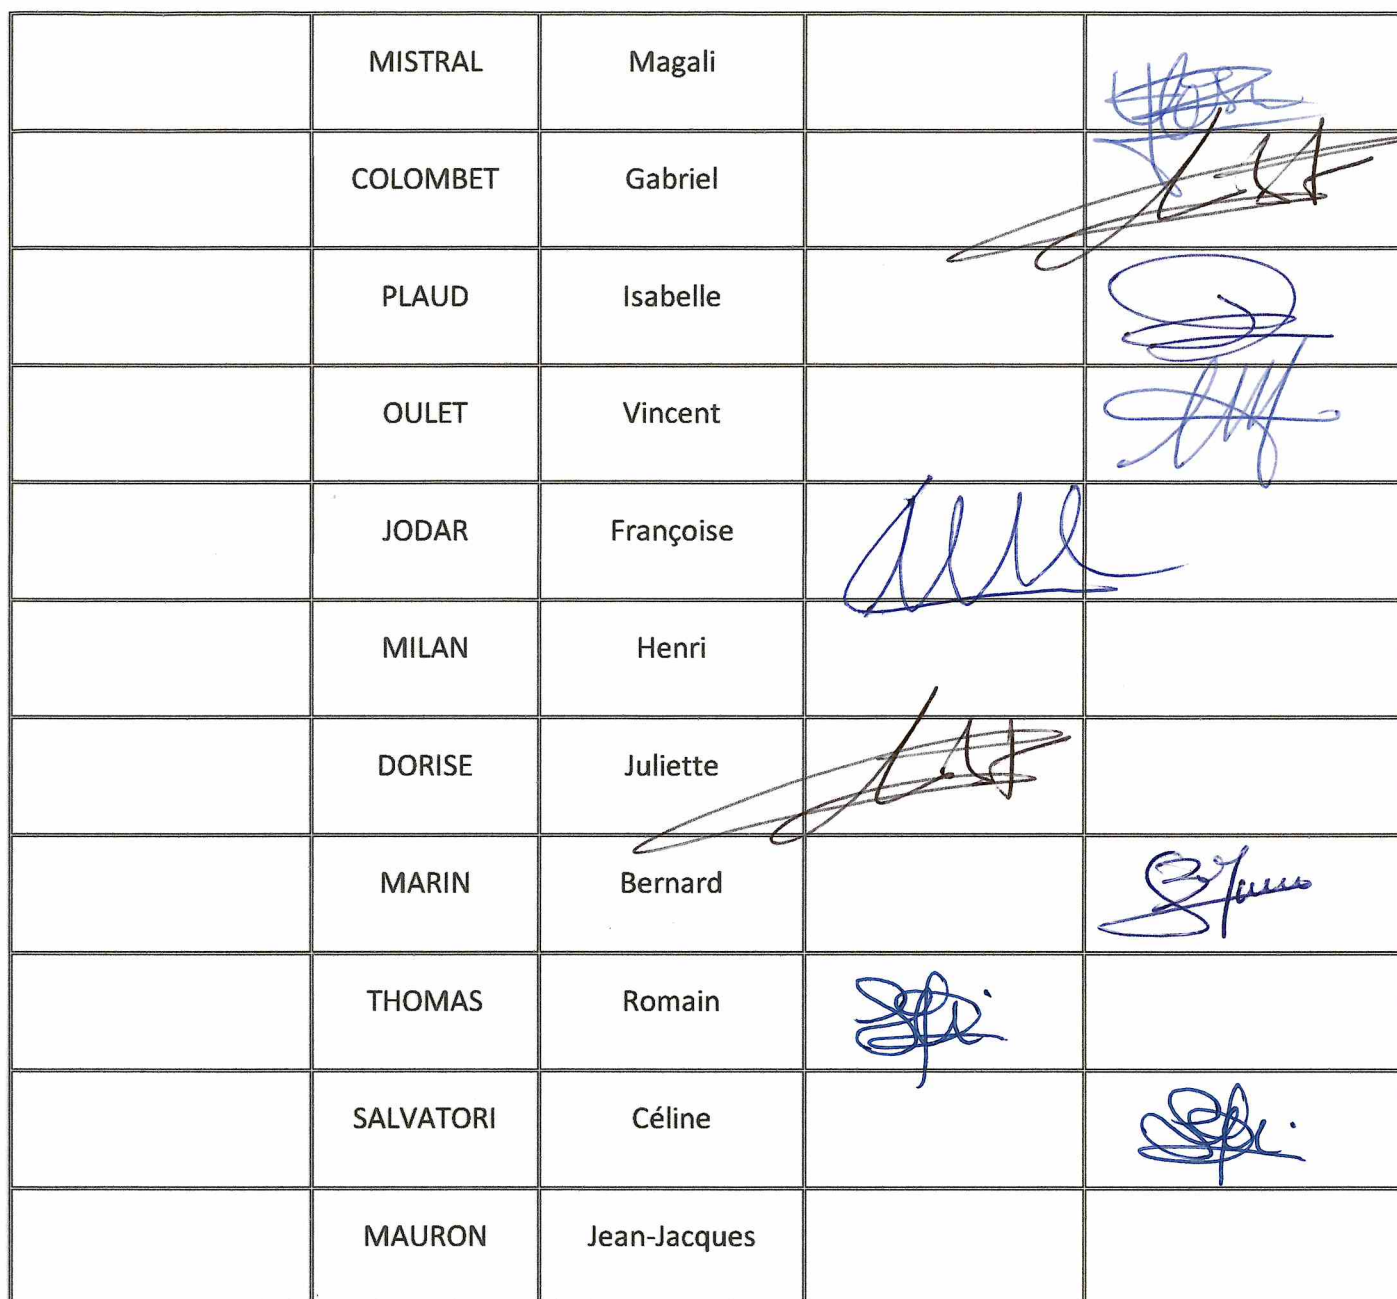 MISTRAL Magali
COLOMBET Gabriel
PLAUD Isabelle
OULET Vincent
JODAR Françoise
MILAN Henri
DORISE Juliette
MARIN Bernard
THOMAS Romain
SALVATORI Céline
MAURON Jean-Jacques